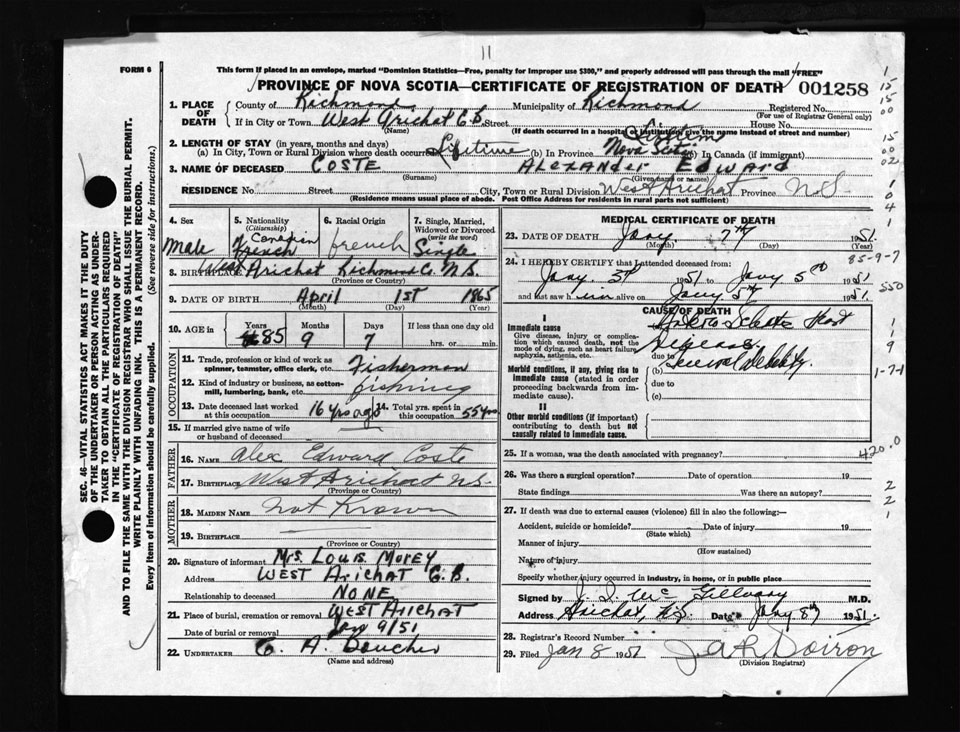 11
FORM 6
This form if placed in an envelope, marked "Dominion Statistics—Free, penalty for improper use $300," and properly addressed will pass through the mail "FREE"
PROVINCE OF NOVA SCOTIA—CERTIFICATE OF REGISTRATION OF DEATH 001258
1. PLACE OF DEATH
County of Richmond Municipality of Richmond Registered No.
(For use of Registrar General only)
If in City or Town West Arichat C.B. Street House No.
(Name) (If death occurred in a hospital or institution give the name instead of street and number)
2. LENGTH OF STAY (in years, months and days) Lifetim
(a) In City, Town or Rural Division where death occurred Lifetime (b) In Province Nova Scotia (c) In Canada (if immigrant)
3. NAME OF DECEASED COSTE ALEXANDER EDWARD
(Surname) (Given name or names)
RESIDENCE No. Street City, Town or Rural Division West Arichat Province N.S
(Residence means usual place of abode. Post Office Address for residents in rural parts not sufficient)
4. Sex Male
5. Nationality (Citizenship) Canadian French
6. Racial Origin french
7. Single, Married, Widowed or Divorced (write the word) Single
8. BIRTHPLACE West Arichat Richmond Co. N.S.
(Province or Country)
9. DATE OF BIRTH April 1st 1865
(Month) (Day) (Year)
10. AGE in Years Months Days If less than one day old
85 9 7 hrs. or min.
OCCUPATION
11. Trade, profession or kind of work as spinner, teamster, office clerk, etc. Fisherman
12. Kind of industry or business, as cotton-mill, lumbering, bank, etc. fishing
13. Date deceased last worked at this occupation 16 yrs ago
14. Total yrs. spent in this occupation 55 yrs
15. If married give name of wife or husband of deceased
FATHER
16. NAME Alex Edward Coste
17. BIRTHPLACE West Arichat N.S.
(Province or Country)
MOTHER
18. MAIDEN NAME Not Known
19. BIRTHPLACE
(Province or Country)
20. Signature of informant Mrs. Louis Morey
Address WEST Arichat C.B.
Relationship to deceased NONE
21. Place of burial, cremation or removal WEST Arichat
Date of burial or removal Jan 9/51
22. UNDERTAKER C. A. Boucher
(Name and address)
MEDICAL CERTIFICATE OF DEATH
23. DATE OF DEATH Jany 7th 1951.
(Month) (Day) (Year)
85-9-7
24. I HEREBY CERTIFY that I attended deceased from
Jany. 3rd 1951 to Jany 5th 1951
and last saw him alive on Jany 5th 1951.
CAUSE OF DEATH
I
Immediate cause
Give disease, injury or complication which caused death, not the mode of dying, such as heart failure, asphyxia, asthenia, etc.
Heart
Disease.
due to
Morbid conditions, if any, giving rise to immediate cause (stated in order proceeding backwards from immediate cause).
(b) General Debility.
due to
(c)
II
Other morbid conditions (if important) contributing to death but not causally related to immediate cause.
25. If a woman, was the death associated with pregnancy? 420.0
26. Was there a surgical operation? Date of operation 19
State findings Was there an autopsy?
27. If death was due to external causes (violence) fill in also the following:—
Accident, suicide or homicide? Date of injury 19
(State which)
Manner of injury
(How sustained)
Nature of injury
Specify whether injury occurred in industry, in home, or in public place
Signed by J. J. McGillivary M.D.
Address Arichat, N.S. Date Jany 8th 1951.
28. Registrar's Record Number
29. Filed Jan 8 1951 J.A.R. Doiron
(Division Registrar)
SEC. 46—VITAL STATISTICS ACT MAKES IT THE DUTY
OF THE UNDERTAKER OR PERSON ACTING AS UNDER-
TAKER TO OBTAIN ALL THE PARTICULARS REQUIRED
IN THE "CERTIFICATE OF REGISTRATION OF DEATH"
AND TO FILE THE SAME WITH THE DIVISION REGISTRAR WHO SHALL ISSUE THE BURIAL PERMIT.
WRITE PLAINLY WITH UNFADING INK. THIS IS A PERMANENT RECORD.
Every item of information should be carefully supplied. (See reverse side for instructions.)